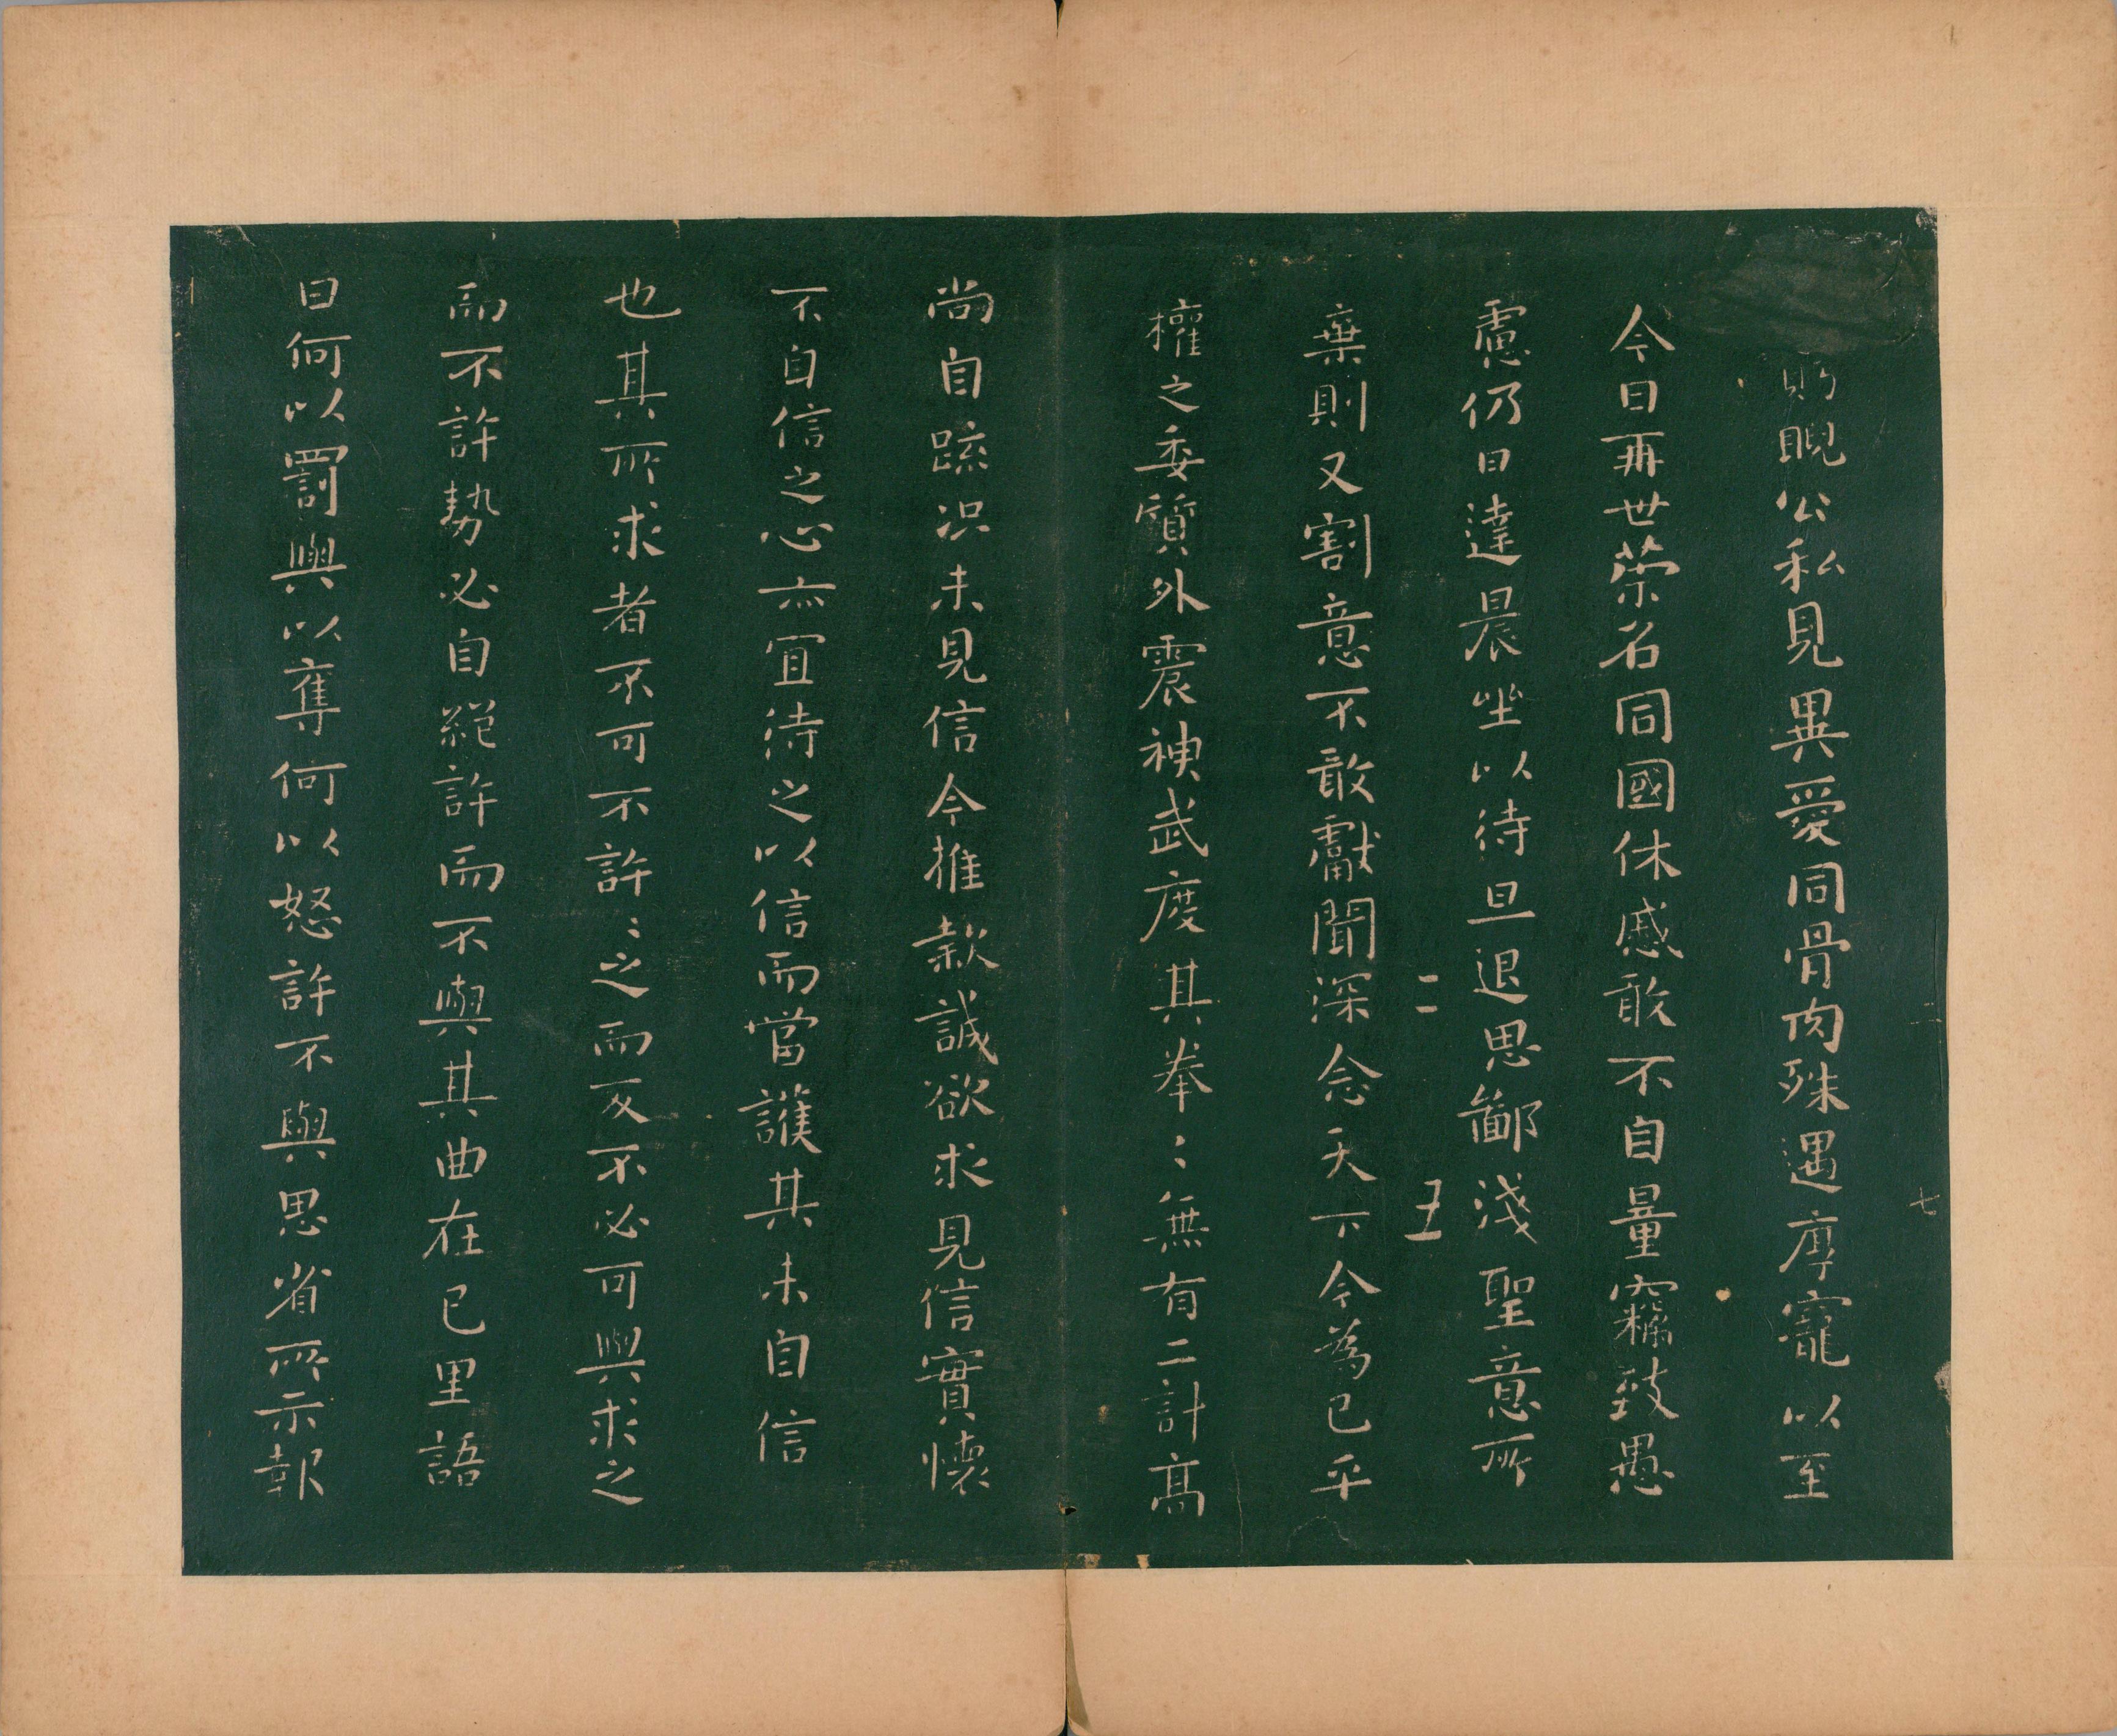 二 七
盼睨公私見異愛同骨肉殊遇厚寵以至
今日再世榮名同國休慼敢不自量竊致愚
慮仍日達晨坐以待旦退思鄙淺聖意所
二 丑
棄則又割意不敢獻聞深念天下今為已平
權之委質外震神武度其拳〻無有二計高
尚自疏況未見信今推款誠欲求見信實懷
不自信之心亦宜待之以信而當護其未自信
也其所求者不可不許〻之而反不必可與求之
而不許勢必自絕許而不與其曲在己里語
曰何以罰與以奪何以怒許不與思省所示報